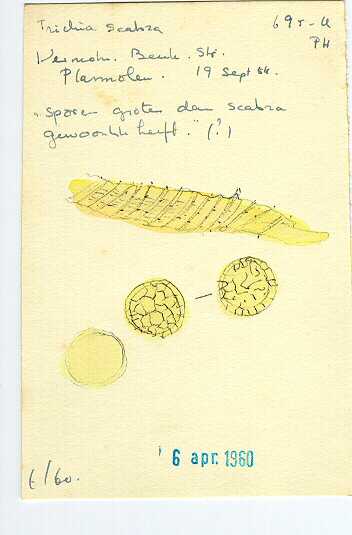 Trichia scabra
69r-U
PH
Plasmolen. 19 Sept 54.
"sporen groter dan scabra
gewoonlijk heeft." (?)
6 apr. 1960
6/60.